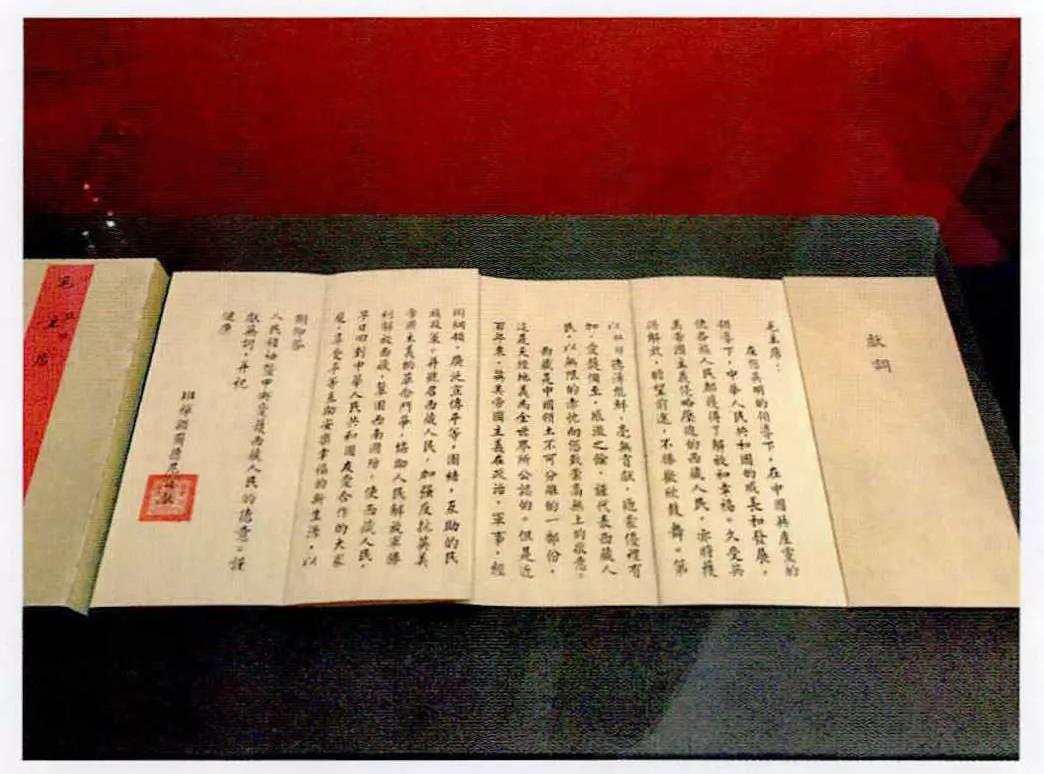 獻詞
毛主席：
在您英明的領導下，在中國共產黨的
領導下，中華人民共和國的成長和發展，
使各族人民都獲得了解放和幸福。久受英
美帝國主義侵略壓迫的西藏人民，亦將獲
得解放，瞻望前途，不勝歡欣鼓舞。第
以班禪德薄慧鮮，毫無貢獻，迺蒙優禮有
加，愛護備至，感激之餘，謹代表西藏人
民，以無限的赤忱向您致崇高無上的敬意。
西藏是中國領土不可分離的一部份，
這是天經地義為全世界所公認的。但是近
百年來，英美帝國主義在政治，軍事，經
同綱領，廣泛宣傳平等，團結，互助的民
族政策，并號召西藏人民，加強反抗英美
帝國主義的革命鬥爭，協助人民解放軍勝
利解放西藏，鞏固西南國防，使西藏人民，
早日回到中華人民共和國友愛合作的大家
庭，享受平等互助安樂幸福的新生活，以
期仰答
人民領袖暨中央愛護西藏人民的德意。謹
獻蕪詞，并祝
健康
班禪額爾德尼
毛主席